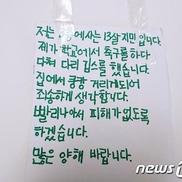 저는 에 사는 13살 지민 입니다.
제가 학교에서 축구를 하다
다쳐 다리 깁스를 했습니다.
집에서 쿵쾅 거리게되어
죄송하게 생각합니다.
빨리나아서 피해가 없도록
하겠습니다.
많은 양해 바랍니다.
news1